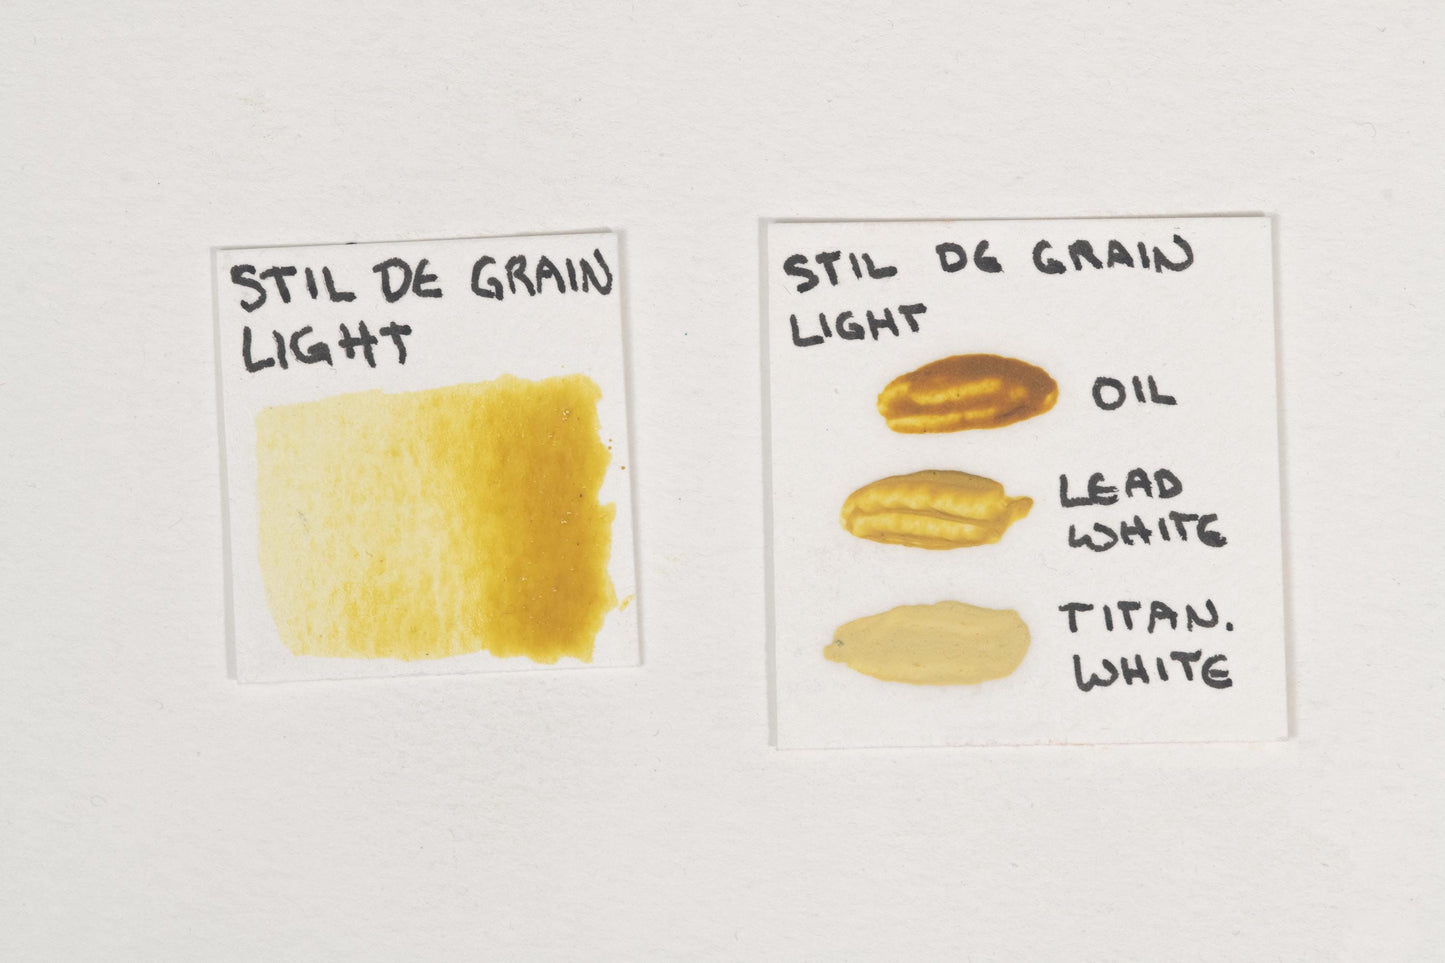 STIL DE GRAIN
LIGHT
STIL DE GRAIN
LIGHT
OIL
LEAD
WHITE
TITAN.
WHITE